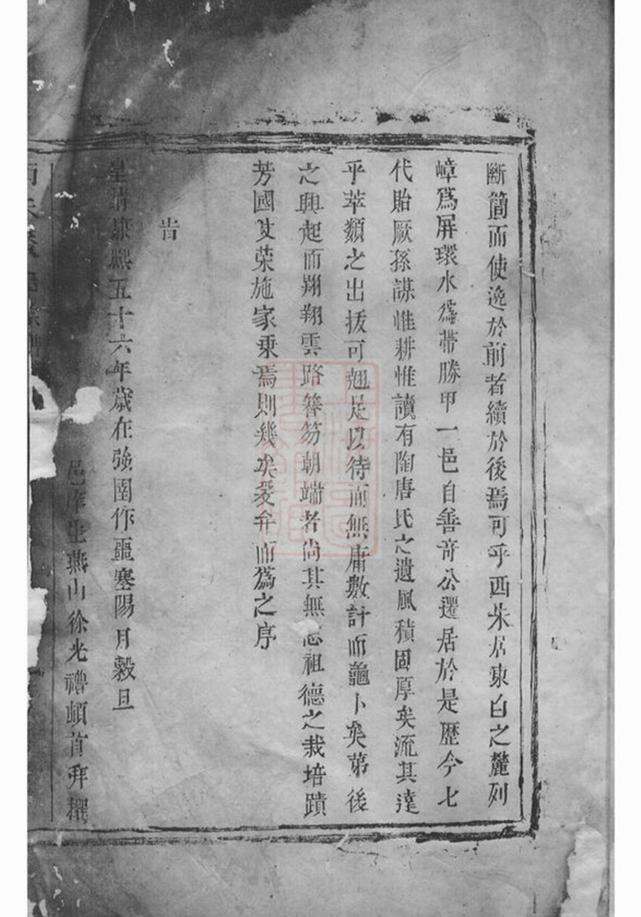 斷簡而使逸於前者續於後焉可乎西朱居東白之麓列
嶂爲屏環水爲帶勝甲一邑自善竒公遷居於是歷今七
代貽厥孫謀惟耕惟讀有陶唐氏之遺風積固厚矣流其達
乎萃類之出拔可翹足以待而無庸數計而龜卜矣第後
之興起而翔翔雲路簪笏朝端者尚其無忘祖德之栽培蹟
芳國史榮施家乗焉則幾矣爰弁而爲之序
旹
皇清康熙五十六年歲在強圉作噩塞陽月穀旦
邑庠生燕山徐光禮頓首拜撰